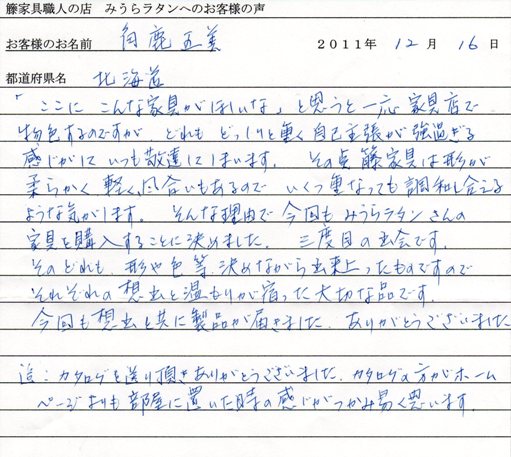 籐家具職人の店　みうらラタンへのお客様の声
お客様のお名前　角鹿 五美　2011年 12月 16日
都道府県名　北海道
「ここに こんな家具がほしいな」と思うと一応 家具店で
物色するのですが、どれも どっしりと重く自己主張が強過ぎる
感じがして いつも敬遠してしまいます。その点 籐家具は形が
柔らかく 軽く、風合いもあるので いくつ重なっても調和し合える
ような気がします。そんな理由で今回も みうらラタンさんの
家具を購入することに決めました。三度目の出会です。
そのどれも、形や色等、決めながら出来上ったものですので
それぞれの想出と温もりが宿った大切な品です。
今回も想出と共に製品が届きました。ありがとうございました
追：カタログを送り頂きありがとうございました、カタログの方がホーム
ページよりも部屋に置いた時の感じがつかみ易く思います。